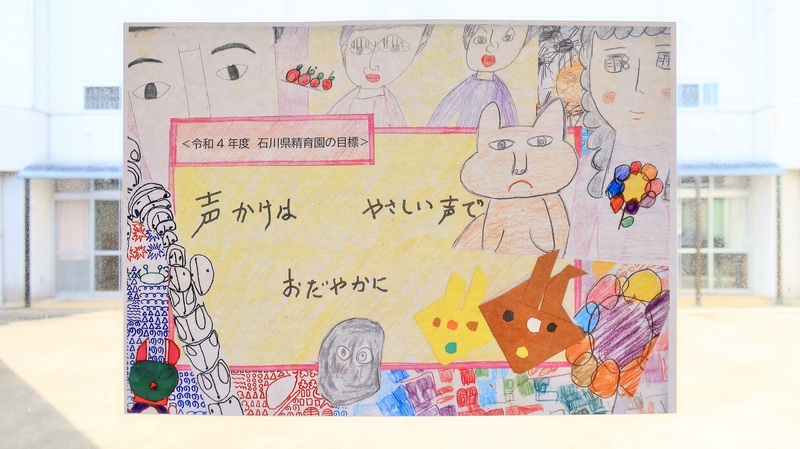 <令和4年度 石川県精育園の目標>
声かけは やさしい声で
おだやかに